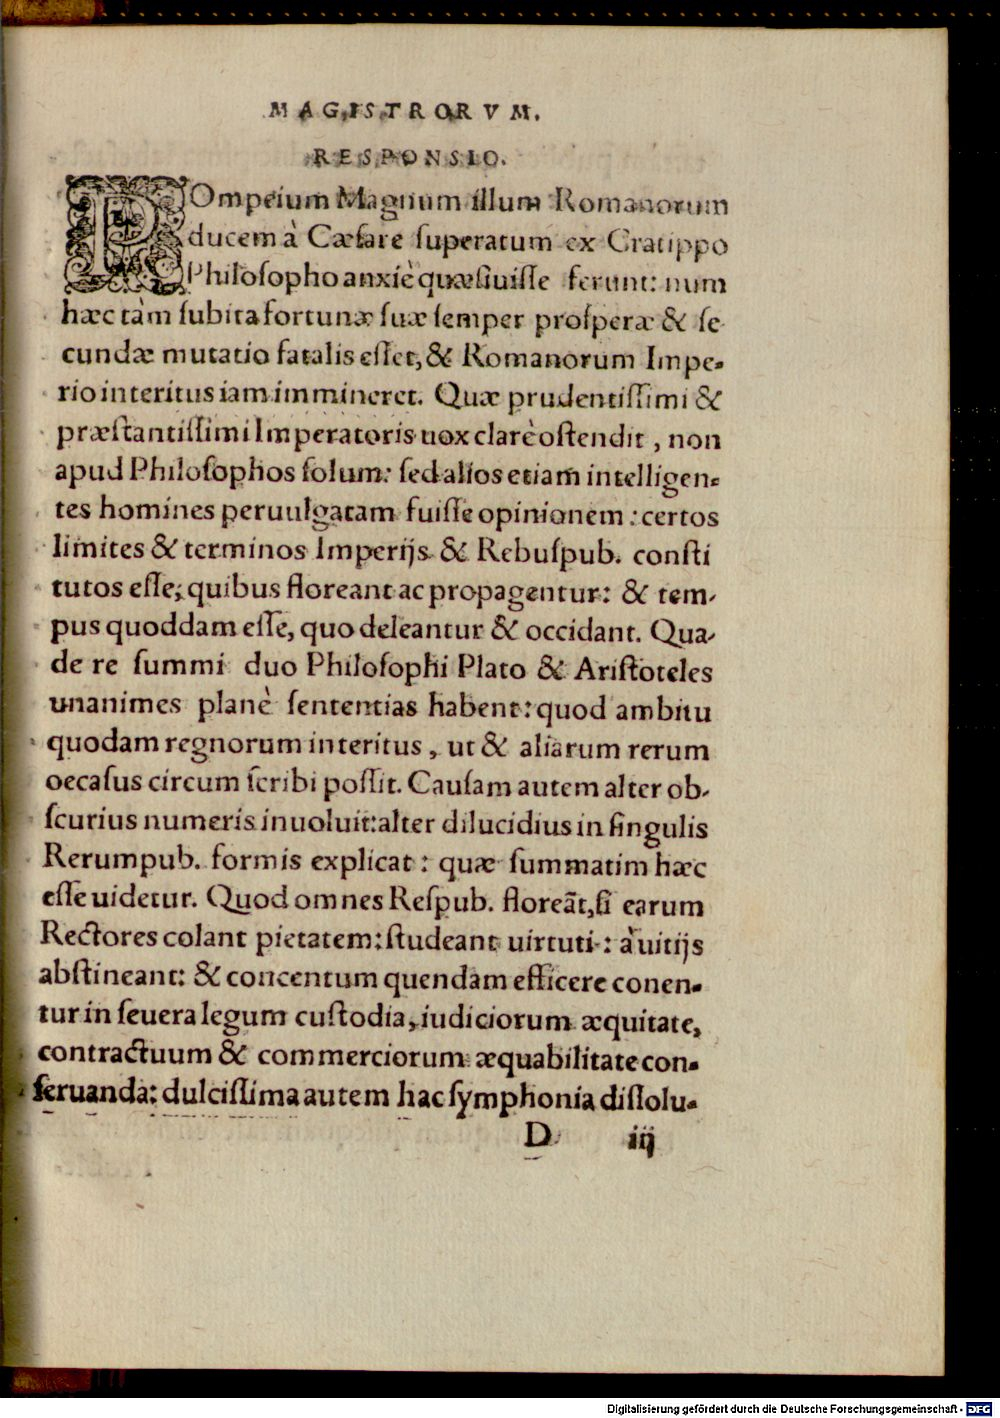 MAGISTRORVM.
RESPONSIO.
POmpeium Magnum illum Romanorum
ducem à Cæſare ſuperatum ex Cratippo
Philoſopho anxiè quæſiuiſſe ferunt: num
hæc tàm ſubita fortunæ ſuæ ſemper proſperæ & ſe
cundæ mutatio fatalis eſſet, & Romanorum Impe-
rio interitus iam immineret. Quæ prudentiſſimi &
præſtantiſſimi Imperatoris uox clarè oſtendit, non
apud Philoſophos ſolum: ſed alios etiam intelligen-
tes homines peruulgatam fuiſſe opinionem: certos
limites & terminos Imperijs & Rebuſpub. conſti
tutos eſſe; quibus floreant ac propagentur: & tem-
pus quoddam eſſe, quo deleantur & occidant. Qua-
de re ſummi duo Philoſophi Plato & Ariſtoteles
unanimes planè ſententias habent: quod ambitu
quodam regnorum interitus, ut & aliarum rerum
occaſus circum ſcribi poſſit. Cauſam autem alter ob-
ſcurius numeris inuoluit: alter dilucidius in ſingulis
Rerumpub. formis explicat: quæ ſummatim hæc
eſſe uidetur. Quod omnes Reſpub. floreāt, ſi earum
Rectores colant pietatem: ſtudeant uirtuti: à uitijs
abſtineant: & concentum quendam efficere conen-
tur in ſeuera legum cuſtodia, iudiciorum æquitate,
contractuum & commerciorum æquabilitate con-
ſeruanda: dulciſſima autem hac ſymphonia diſſolu-
D iij
Digitalisierung gefördert durch die Deutsche Forschungsgemeinschaft - DFG